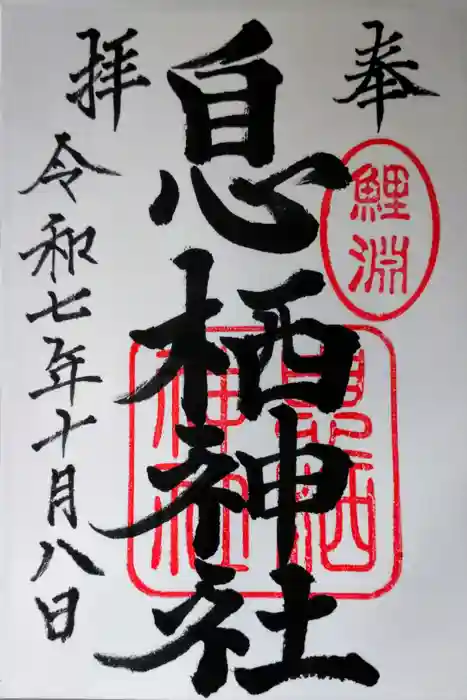 奉
鯉淵
息栖神社
拝
令和七年十月八日